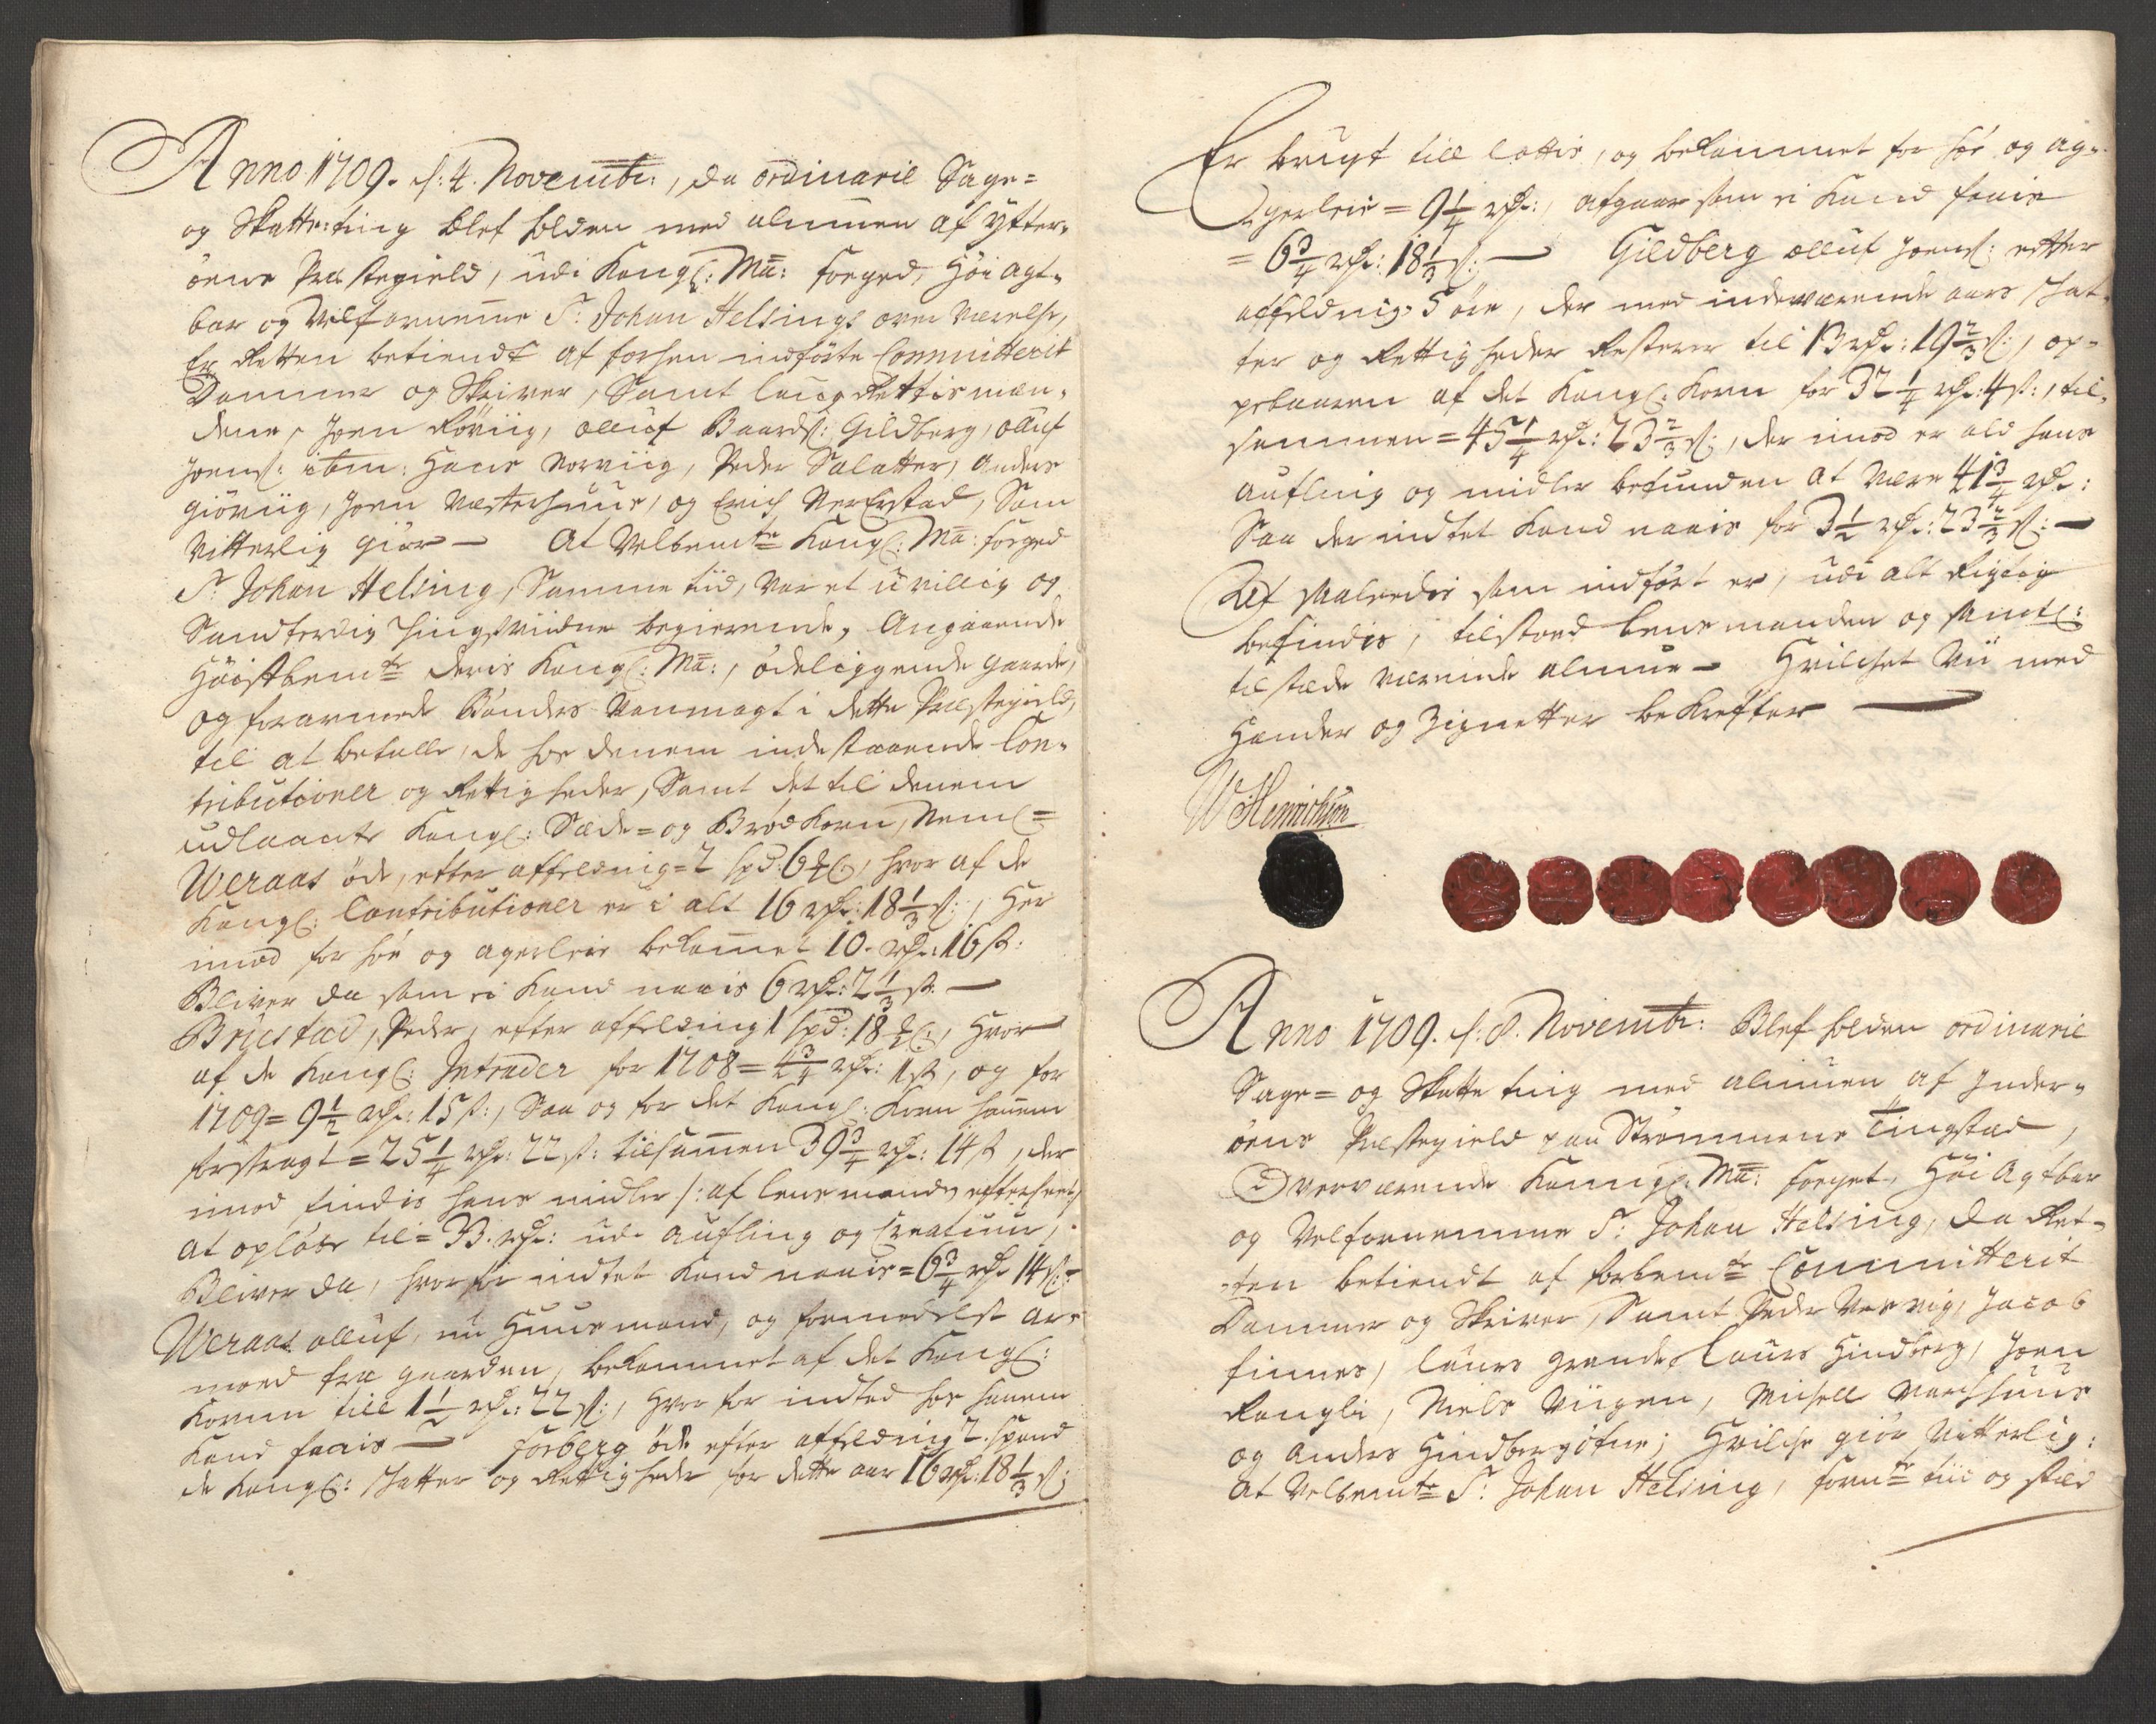 Anno 1709. d: 4. Novembr:, da ordinarie Sage=
og Skatte:ting blef holden med almuen af Ytter-
öens Præstegield, udi Kongl: Ma: foeged, Höi agt-
bar og Velfornemme Sr: Johan Helsings over Værelse,
Er Retten betiendt af forhen indförte Committerit
Dommer og Skriver, Samt laug Rettis mæn-
dene, Joen Röviig, olluf Baards: Gildberg, olluf
Joens: ibm: Hans Norviig, Peder Salatter, Anders
Giörviig, Joen Westerhuus, og Erich Ner Erstad, Som
Vitterlig giör — At Velbemte Kongl: Ma: foeged
Sr. Johan Helsing, Samme tiid, Var et uvillig og
Sandferdig Tingsviidne begierende, Angaaende
Höistbemte deris Kongl: Ma:, ödeliggende gaarde,
og forarmede Bönders Vanmagt i dette Præstegield,
til at betalle, de hos denem inde staaende Con-
tributioner og Rettigheder, Samt det til denem
udlaante Kongl: Sæde= og Brödkorn, Neml=
Weraas öde, efter affeldnig = 2 spd: 6 , hvor af de
Kongl: Contributioner er i alt 16 rdr: 18 1/3 s:, Her
imod for höe og agerleie bekommet 10. rdr: 16 s:
Bliver da som ei kand naais 6 rdr: 2 1/3 s. —
Bruestad, Peder, efter affelding 1 spd: 18 , Hvor
af de Kongl: Intrader for 1708 = 4 3/4 rdr: 1 s, og for
1709 = 9 1/2 rdr: 15 s:, Saa og for det Kongl: Korn hannem
forstragt = 25 1/4 rdr: 22 s: tilsammen 39 3/4 rdr: 14 s, der
imod findis hans midler /: af lens manden efterseet /
at oplöbe til = 33. rdr: udi aufling og Creatuur,
Bliver da, hvor for indtet kand naais = 6 3/4 rdr 14 s:
Weraas olluf, nu Huusmand, og formedelst ar-
moed fra gaarden, bekommet af det Kongl:
Kornn till 1 1/2 rdr: 22 s:, hvor for indted hos hannem
kand faais — Forberg öde efter affeldnig 2. spand
de Kongl: skatter og Rettigheder for dette aar 16 rdr: 18 1/3 s:
Er brugt till lottis, og bekommet for höe og ag-
gerleie = 9 1/4 rdr:, afgaar som ei kand faais
= 6 3/4 rdr: 18 1/3 s: — Gildberg olluf Joens: efter
affeldnig 5 öre, der med indeværende aars skat-
ter og Rettigheder Resterer til 13 rdr: 19 2/3 s:, op-
pebaaren af det Kongl: Korn for 32 1/4 rdr: 4 s:, til-
sammen = 45 1/4 rdr: 23 2/3 s:, der imod er ald hans
aufling og midler befunden at være 41 3/4 rdr:
Saa der indtet kand naais for 3 1/2 rdr: 23 2/3 s: —
Det saaledis som indfört er, udi alt Rigtig
befindis, tilstoed lens manden og samtl:
tilstæde værende almue — Hvilchet Vii med
Hænder og Zignetter bekrefter —
W Henrichsøn
Anno 1709. d: 8. Novembr: Blef holden ordinarie
Sage= og Skatte ting med almuen af Inder-
öens Præstegield paa Strömmens Tingstad,
Overværende Kongl: Ma: foeget, Höi Agtbar
og Velfornemme Sr: Johan Helsing, da Ret-
ten betiendt af forbemte Committerit
Dommer og Skriver, Samt Peder Vessvig, Jacob
finnes, laurs grande, Laurs Hindberg, Joen
Rongli, Niels Viigen, Michell Verchhuus
og Anders Hindbergöfne; Hvilche giör Vitterlig:
At Velbemte Sr: Johan Helsing, formte tiid og stæd